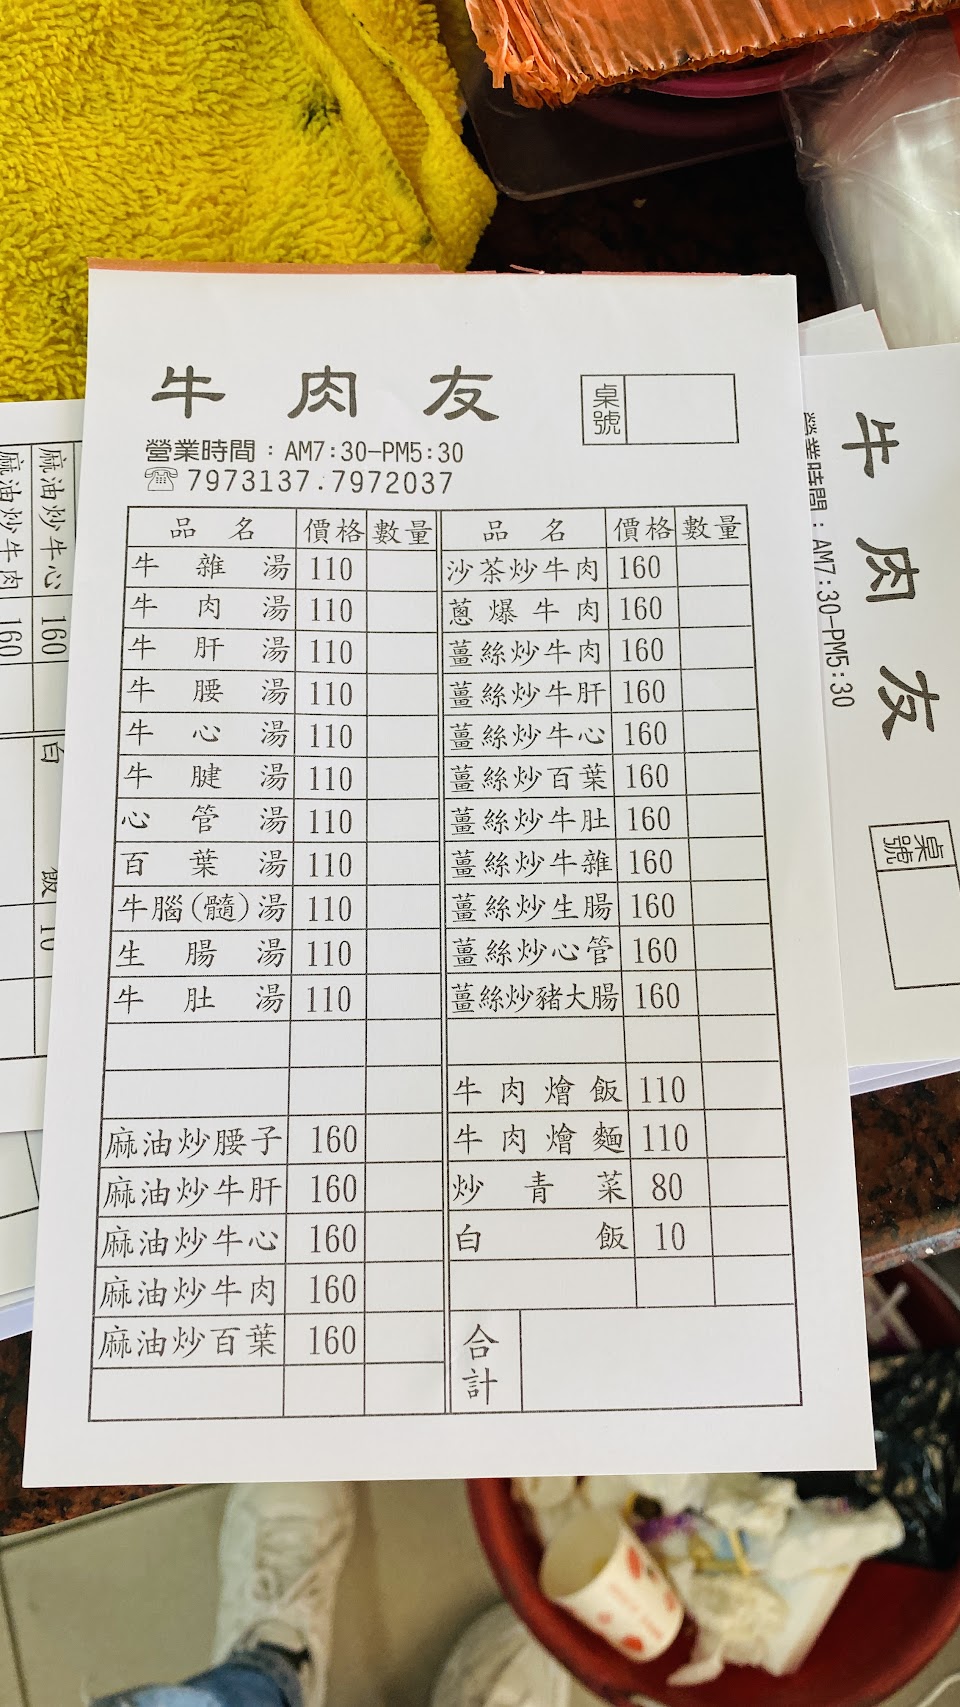 牛肉友
桌號
營業時間：AM7:30-PM5:30
☏7973137.7972037
品名 價格 數量
牛雜湯 110
牛肉湯 110
牛肝湯 110
牛腰湯 110
牛心湯 110
牛腱湯 110
心管湯 110
百葉湯 110
牛腦(髓)湯 110
生腸湯 110
牛肚湯 110
麻油炒腰子 160
麻油炒牛肝 160
麻油炒牛心 160
麻油炒牛肉 160
麻油炒百葉 160
品名 價格 數量
沙茶炒牛肉 160
蔥爆牛肉 160
薑絲炒牛肉 160
薑絲炒牛肝 160
薑絲炒牛心 160
薑絲炒百葉 160
薑絲炒牛肚 160
薑絲炒牛雜 160
薑絲炒生腸 160
薑絲炒心管 160
薑絲炒豬大腸 160
牛肉燴飯 110
牛肉燴麵 110
炒青菜 80
白飯 10
合計
麻油炒牛心 160
白飯 10
麻油炒牛肉 160
牛肉友
桌號
營業時間：AM7:30-PM5:30